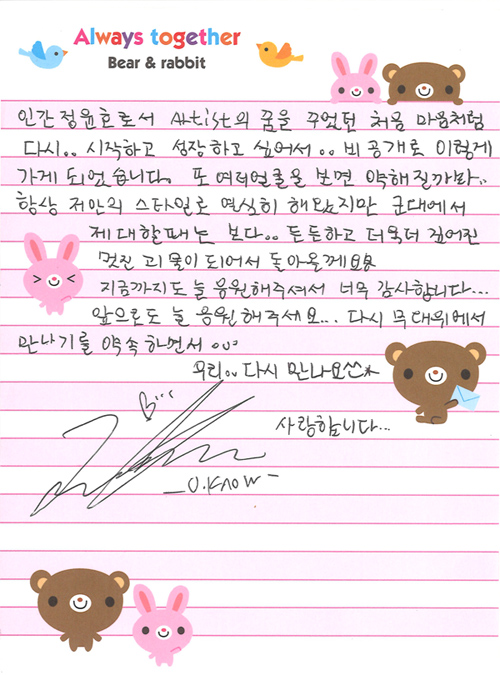 Always together
Bear & rabbit
인간정윤호로서 Artist의 꿈을 꾸었던 처음 마음처럼
다시.. 시작하고 성장하고 싶어서.. 비공개로 이렇게
가게 되었습니다. 또 여러얼굴을 보면 약해질까봐..
항상 저만의 스타일로 열심히 해왔지만 군대에서
제대할때는 보다.. 든든하고 더욱더 깊어진
멋진 괴물이 되어서 돌아올께요
지금까지도 늘 응원해주셔서 너무 감사합니다...
앞으로도 늘 응원해주세요... 다시 무대위에서
만나기를 약속하면서...
우리.. 다시 만나요^^*
사랑합니다...
-U.Know-